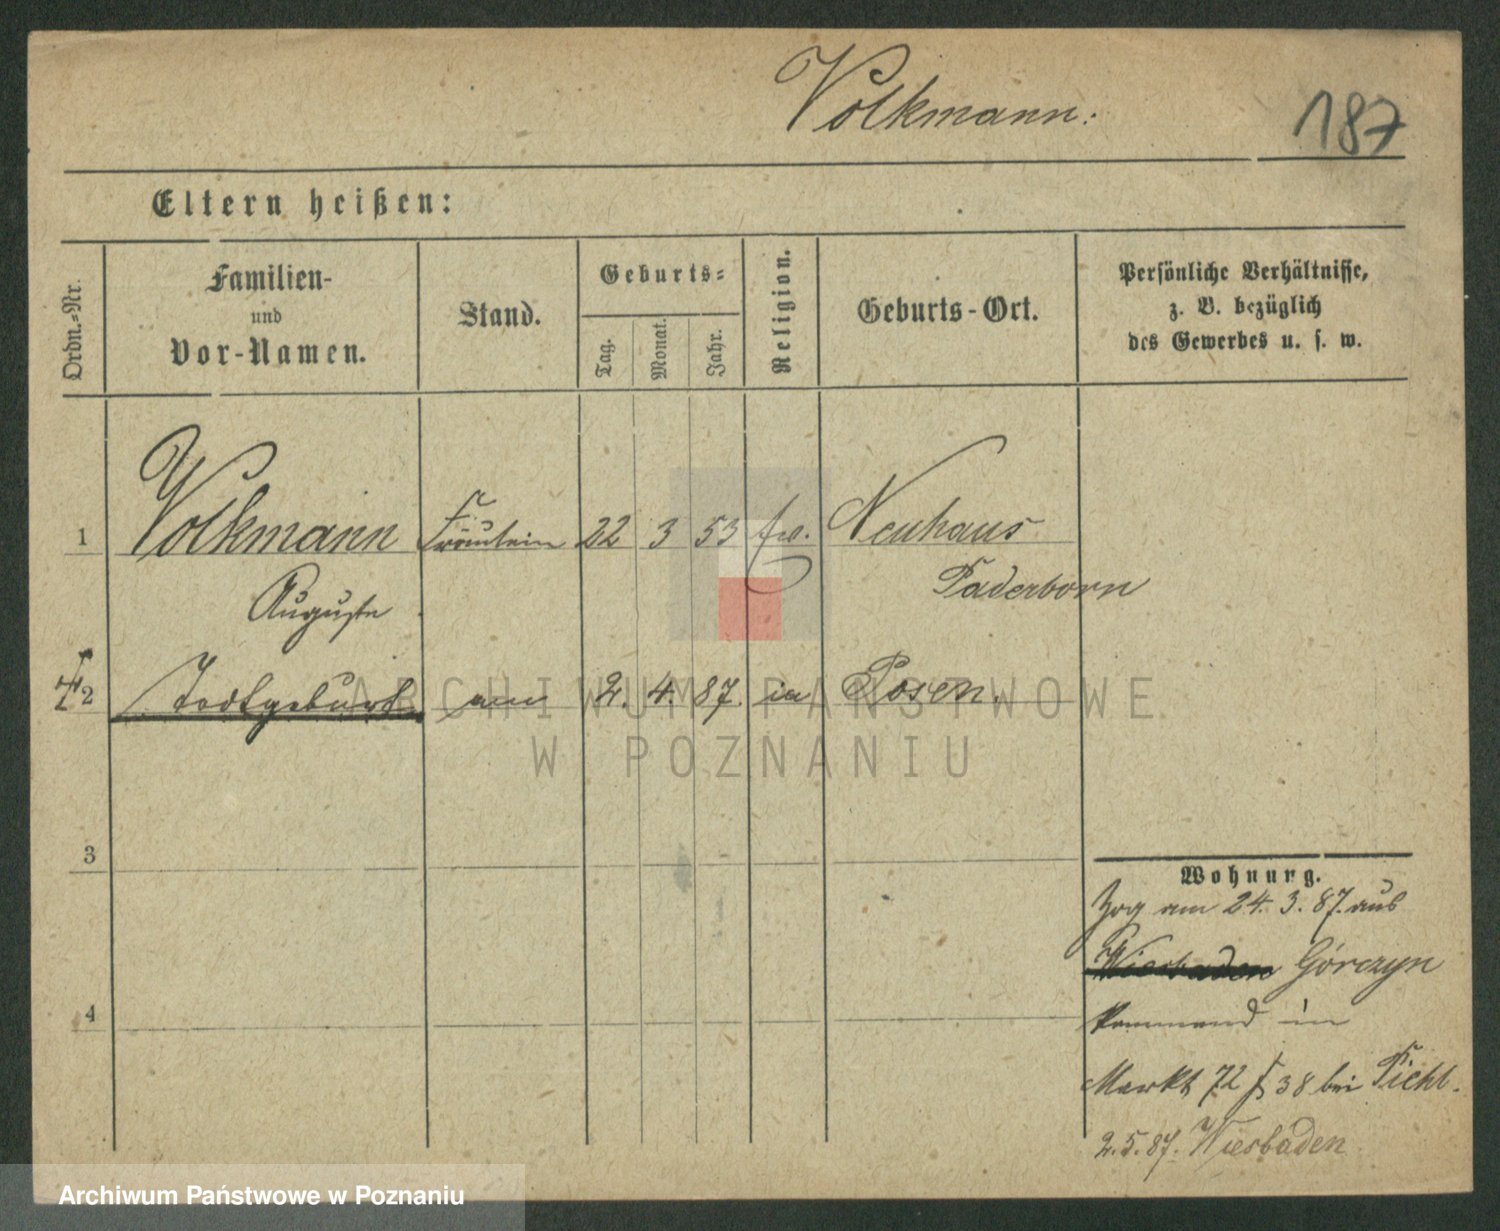 Volkmann.
187
Eltern heißen:
Ordn.-Nr.
Familien-
und
Vor-Namen.
Stand.
Geburts-
Tag.
Monat.
Jahr.
Religion.
Geburts-Ort.
Persönliche Verhältnisse,
z. B. bezüglich
des Gewerbes u. s. w.
1 Volkmann Fräulein 22 3 53 Neuhaus
Auguste Paderborn
2 Todtgeburt am 2. 4. 87. in Posen.
3
4
Wohnung.
Zog am 24. 3. 87. aus
Wiesbaden Górczyn
kommend in
Markt 72 38 bei Pichl.
2. 5. 87. Wiesbaden
ARCHIWUM PAŃSTWOWE
W POZNANIU
Archiwum Państwowe w Poznaniu